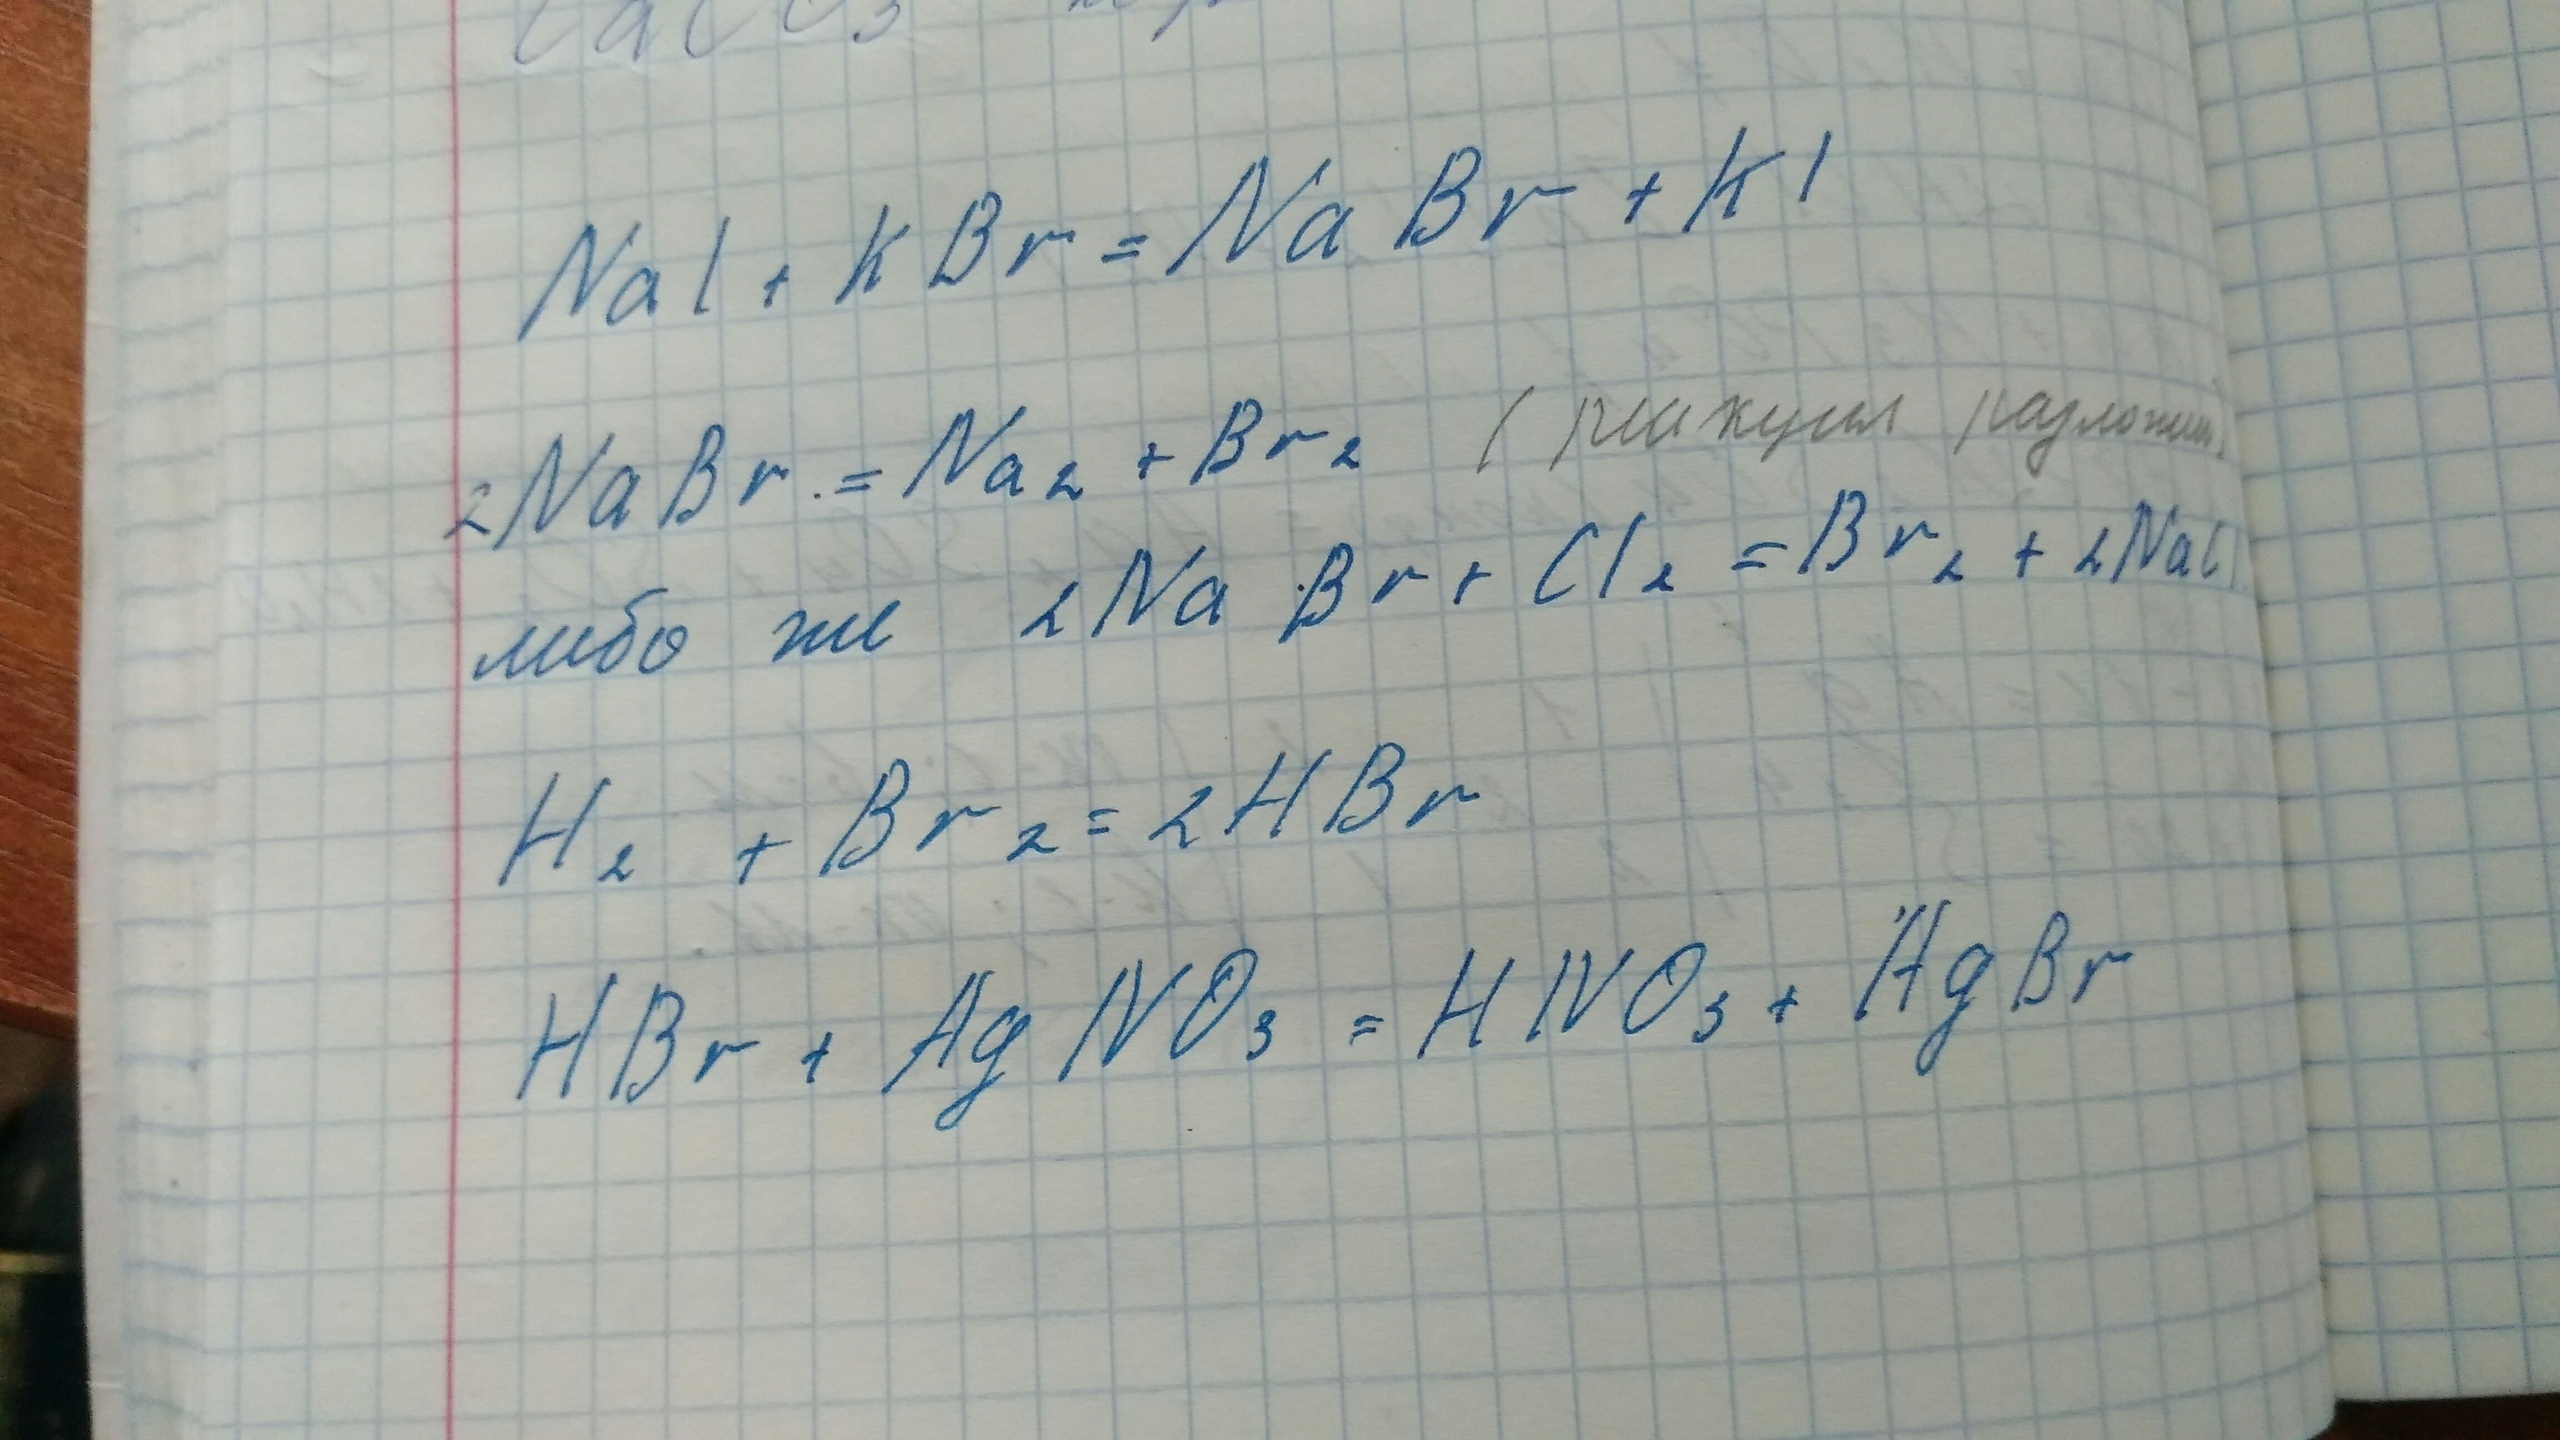 CaCO3
NaI + KBr = NaBr + KI
2NaBr = Na2 + Br2 (реакция разложен
либо же 2NaBr + Cl2 = Br2 + 2NaCl
H2 + Br2 = 2HBr
HBr + AgNO3 = HNO3 + AgBr